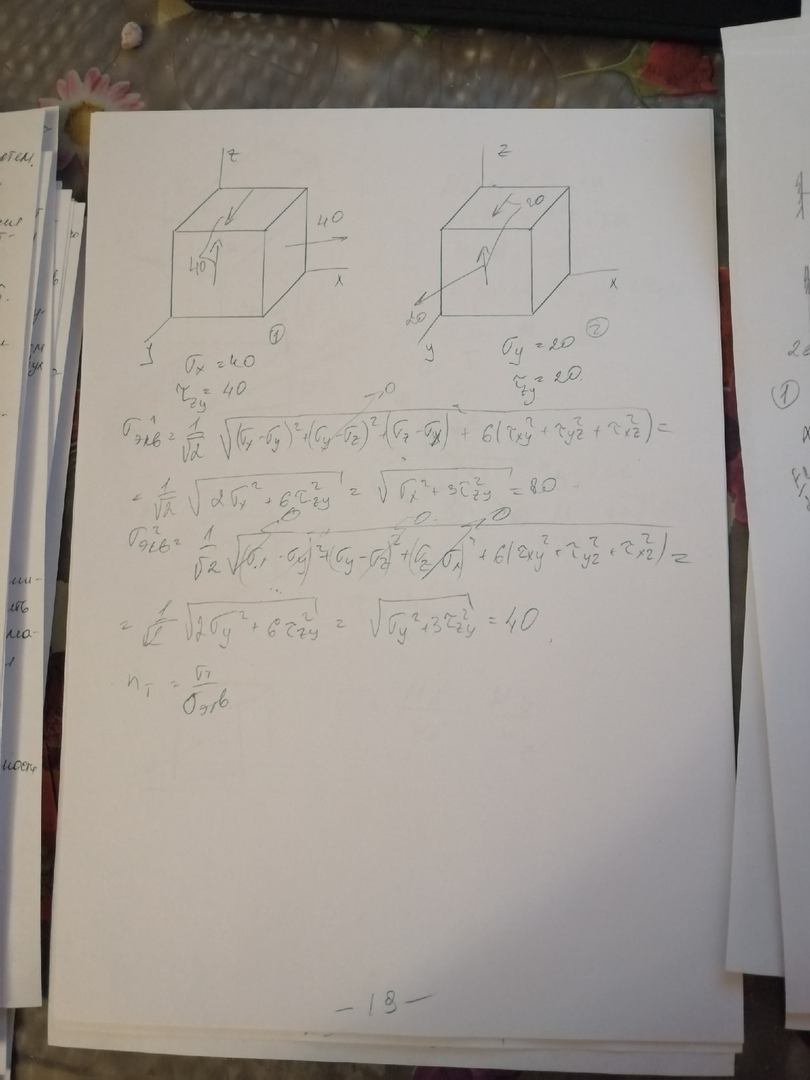 z
z
40
20
40
x
x
20
y
①
y
②
σx = 40
σy = 20
τzy = 40
τzy = 20
σэкв¹ = 1/√2 √((σx - σy)² + (σy - σz)² + (σz - σx)² + 6(τxy² + τyz² + τxz²)) =
0
= 1/√2 √(2σx² + 6τzy²) = √(σx² + 3τzy²) = 80
0 0 0
σэкв² = 1/√2 √((σx - σy)² + (σy - σz)² + (σz - σx)² + 6(τxy² + τyz² + τxz²)) =
= 1/√2 √(2σy² + 6τzy²) = √(σy² + 3τzy²) = 40
nт = σт/σэкв
①